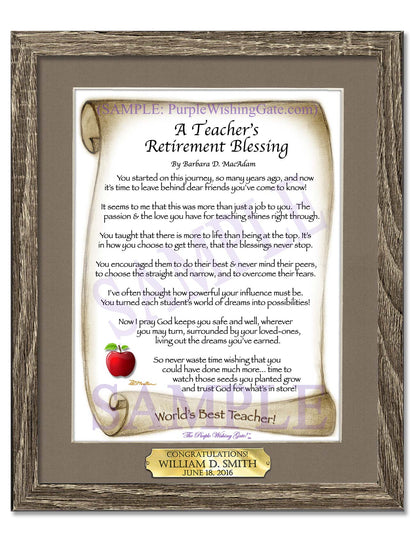 SAMPLE: PurpleWishingGate.com
A Teacher's
Retirement Blessing
By Barbara D. MacAdam
You started on this journey, so many years ago, and now
it's time to leave behind dear friends you've come to know!
It seems to me that this was more than just a job to you. The
passion & the love you have for teaching shines right through.
You taught that there is more to life than being at the top. It's
in how you choose to get there, that the blessings never stop.
You encouraged them to do their best & never mind their peers,
to choose the straight and narrow, and to overcome their fears.
I've often thought how powerful your influence must be.
You turned each student's world of dreams into possibilities!
Now I pray God keeps you safe and well, wherever
you may turn, surrounded by your loved-ones,
living out the dreams you've earned.
So never waste time wishing that you
could have done much more... time to
watch those seeds you planted grow
and trust God for what's in store!
SAMPLE
SAMPLE
World's Best Teacher!
The Purple Wishing Gate!
CONGRATULATIONS!
WILLIAM D. SMITH
JUNE 18, 2016